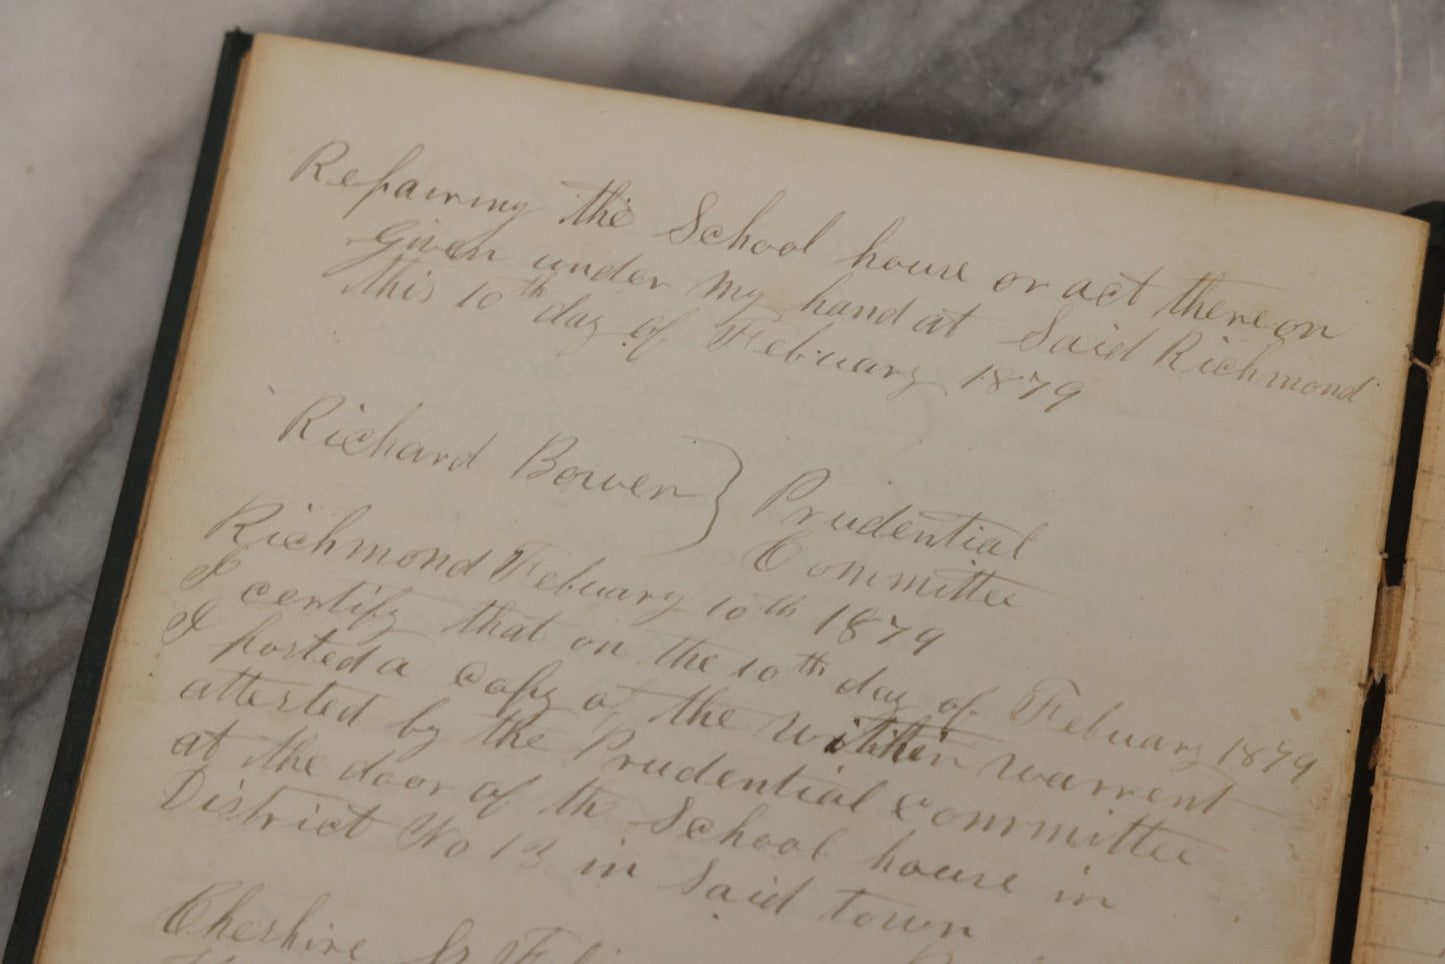 Repairing the School house or act there on
Given under my hand at Said Richmond
this 10th day of Febuary 1879
Richard Bowen } Prudential
Committee
Richmond Febuary 10th 1879
I certify that on the 10th day of Febuary 1879
I posted a copy of the within warrent
attested by the Prudential Committee
at the door of the School house in
District No 13 in Said town
Cheshire Ss